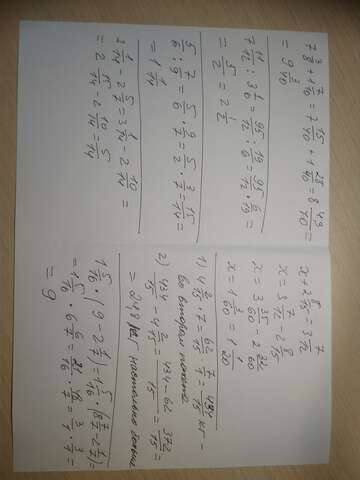 7 3/8 + 1 7/10 = 7 15/40 + 1 28/40 = 8 43/40 =
= 9 3/40
7 11/12 : 3 1/6 = 95/12 : 19/6 = 95/12 · 6/19 =
= 5/2 = 2 1/2
5/6 : 7/9 = 5/6 · 9/7 = 5/2 · 3/7 = 15/14 =
= 1 1/14
3 1/14 - 2 5/7 = 3 1/14 - 2 10/14 =
= 2 15/14 - 2 10/14 = 5/14
x + 2 8/15 = 3 7/12
x = 3 7/12 - 2 8/15
x = 3 35/60 - 2 32/60
x = 1 3/60 = 1 1/20
1) 4 2/15 · 7 = 62/15 · 7/1 = 434/15 кг -
во втором пакете
2) 434/15 - 4 2/15 = 434-62/15 = 372/15 =
= 24,8 кг настолько больше
1 5/16 · (9 - 2 1/7) = 1 5/16 · (8 7/7 - 2 1/7) =
= 1 5/16 · 6 6/7 = 21/16 · 48/7 = 3/1 · 3/1 =
= 9